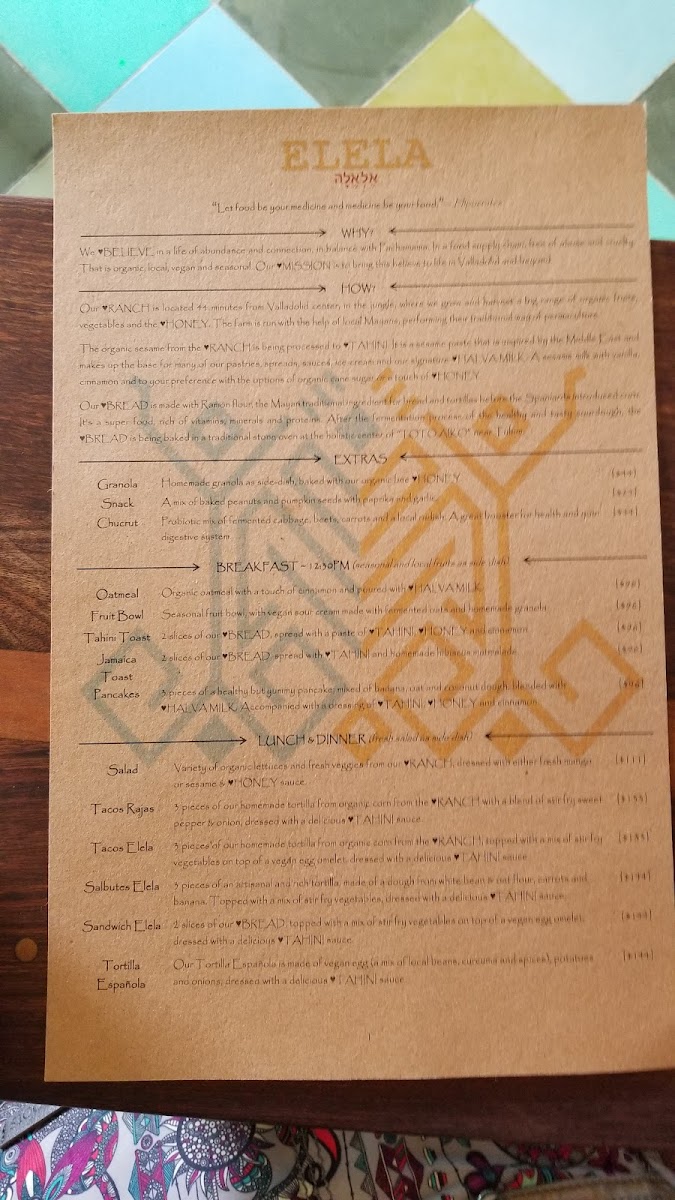 ELELA
אלאלה
"Let food be your medicine and medicine be your food." - Hipocrates
WHY?
We ♥BELIEVE in a life of abundance and connection, in balance with Pachamama. In a food supply chain, free of abuse and cruelty.
That is organic, local, vegan and seasonal. Our ♥MISSION is to bring this believe to life in Valladolid and beyond.
HOW?
Our ♥RANCH is located 44 minutes from Valladolid center, in the jungle, where we grow and harvest a big range of organic fruits,
vegetables and the ♥HONEY. The farm is run with the help of local Mayans, performing their traditional way of permaculture.
The organic sesame from the ♥RANCH is being processed to ♥TAHINI. It is a sesame paste that is inspired by the Middle East and
makes up the base for many of our pastries, spreads, sauces, ice cream and our signature ♥HALVAMILK: A sesame milk with vanilla,
cinnamon and to your preference with the options of organic cane sugar or a touch of ♥HONEY.
Our ♥BREAD is made with Ramon flour, the Mayan traditional ingredient for bread and tortillas before the Spaniards introduced corn.
It's a super food, rich of vitamins, minerals and proteins. After the fermentation process of the healthy and tasty sourdough, the
♥BREAD is being baked in a traditional stone oven at the holistic center of "TOTOAIKO" near Tulum.
EXTRAS
Granola Homemade granola as side-dish, baked with our organic bee ♥HONEY
Snack A mix of baked peanuts and pumpkin seeds with paprika and garlic
Chucrut Probiotic mix of fermented cabbage, beets, carrots and a local radish. A great booster for health and your
digestive system
BREAKFAST – 12:30PM (seasonal and local fruits as side dish)
Oatmeal Organic oatmeal with a touch of cinnamon and poured with ♥HALVAMILK
Fruit Bowl Seasonal fruit bowl, with vegan sour cream made with fermented oats and homemade granola
Tahini Toast 2 slices of our ♥BREAD, spread with a paste of ♥TAHINI, ♥HONEY and cinnamon
Jamaica 2 slices of our ♥BREAD, spread with ♥TAHINI and homemade hibiscus marmalade
Toast
Pancakes 3 pieces of a healthy but yummy pancake, mixed of banana, oat and coconut dough, blended with
♥HALVAMILK. Accompanied with a dressing of ♥TAHINI, ♥HONEY and cinnamon
LUNCH & DINNER (fresh salad as side dish)
Salad Variety of organic lettuces and fresh veggies from our ♥RANCH, dressed with either fresh mango [$111]
or sesame & ♥HONEY sauce.
Tacos Rajas 3 pieces of our homemade tortilla from organic corn from the ♥RANCH with a blend of stir fry sweet
pepper & onion, dressed with a delicious ♥TAHINI sauce
Tacos Elela 3 pieces of our homemade tortilla from organic corn from the ♥RANCH, topped with a mix of stir fry
vegetables on top of a vegan egg omelet, dressed with a delicious ♥TAHINI sauce
Salbutes Elela 3 pieces of an artisanal and rich tortilla, made of a dough from white bean & oat flour, carrots and [$144]
banana. Topped with a mix of stir fry vegetables, dressed with a delicious ♥TAHINI sauce,
Sandwich Elela 2 slices of our ♥BREAD, topped with a mix of stir fry vegetables on top of a vegan egg omelet, [$144]
dressed with a delicious ♥TAHINI sauce
Tortilla Our Tortilla Española is made of vegan egg (a mix of local beans, curcuma and spices), potatoes [$144]
Española and onions, dressed with a delicious ♥TAHINI sauce
1